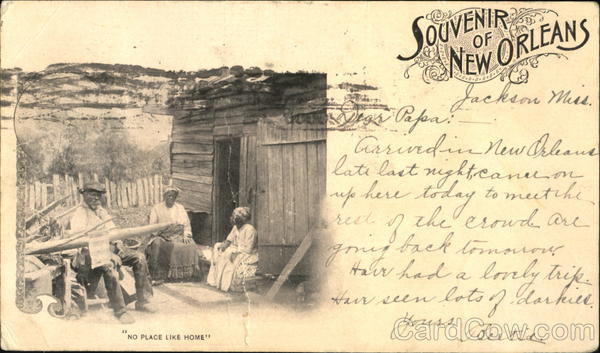 SOUVENIR
OF
NEW ORLEANS
Jackson Miss.
Dear Papa:—
Arrived in New Orleans
late last night, came on
up here today to meet the
rest of the crowd. Are
going back tomorrow.
Have had a lovely trip.
Have seen lots of darkies.
Yours
"NO PLACE LIKE HOME"
CardCow.com